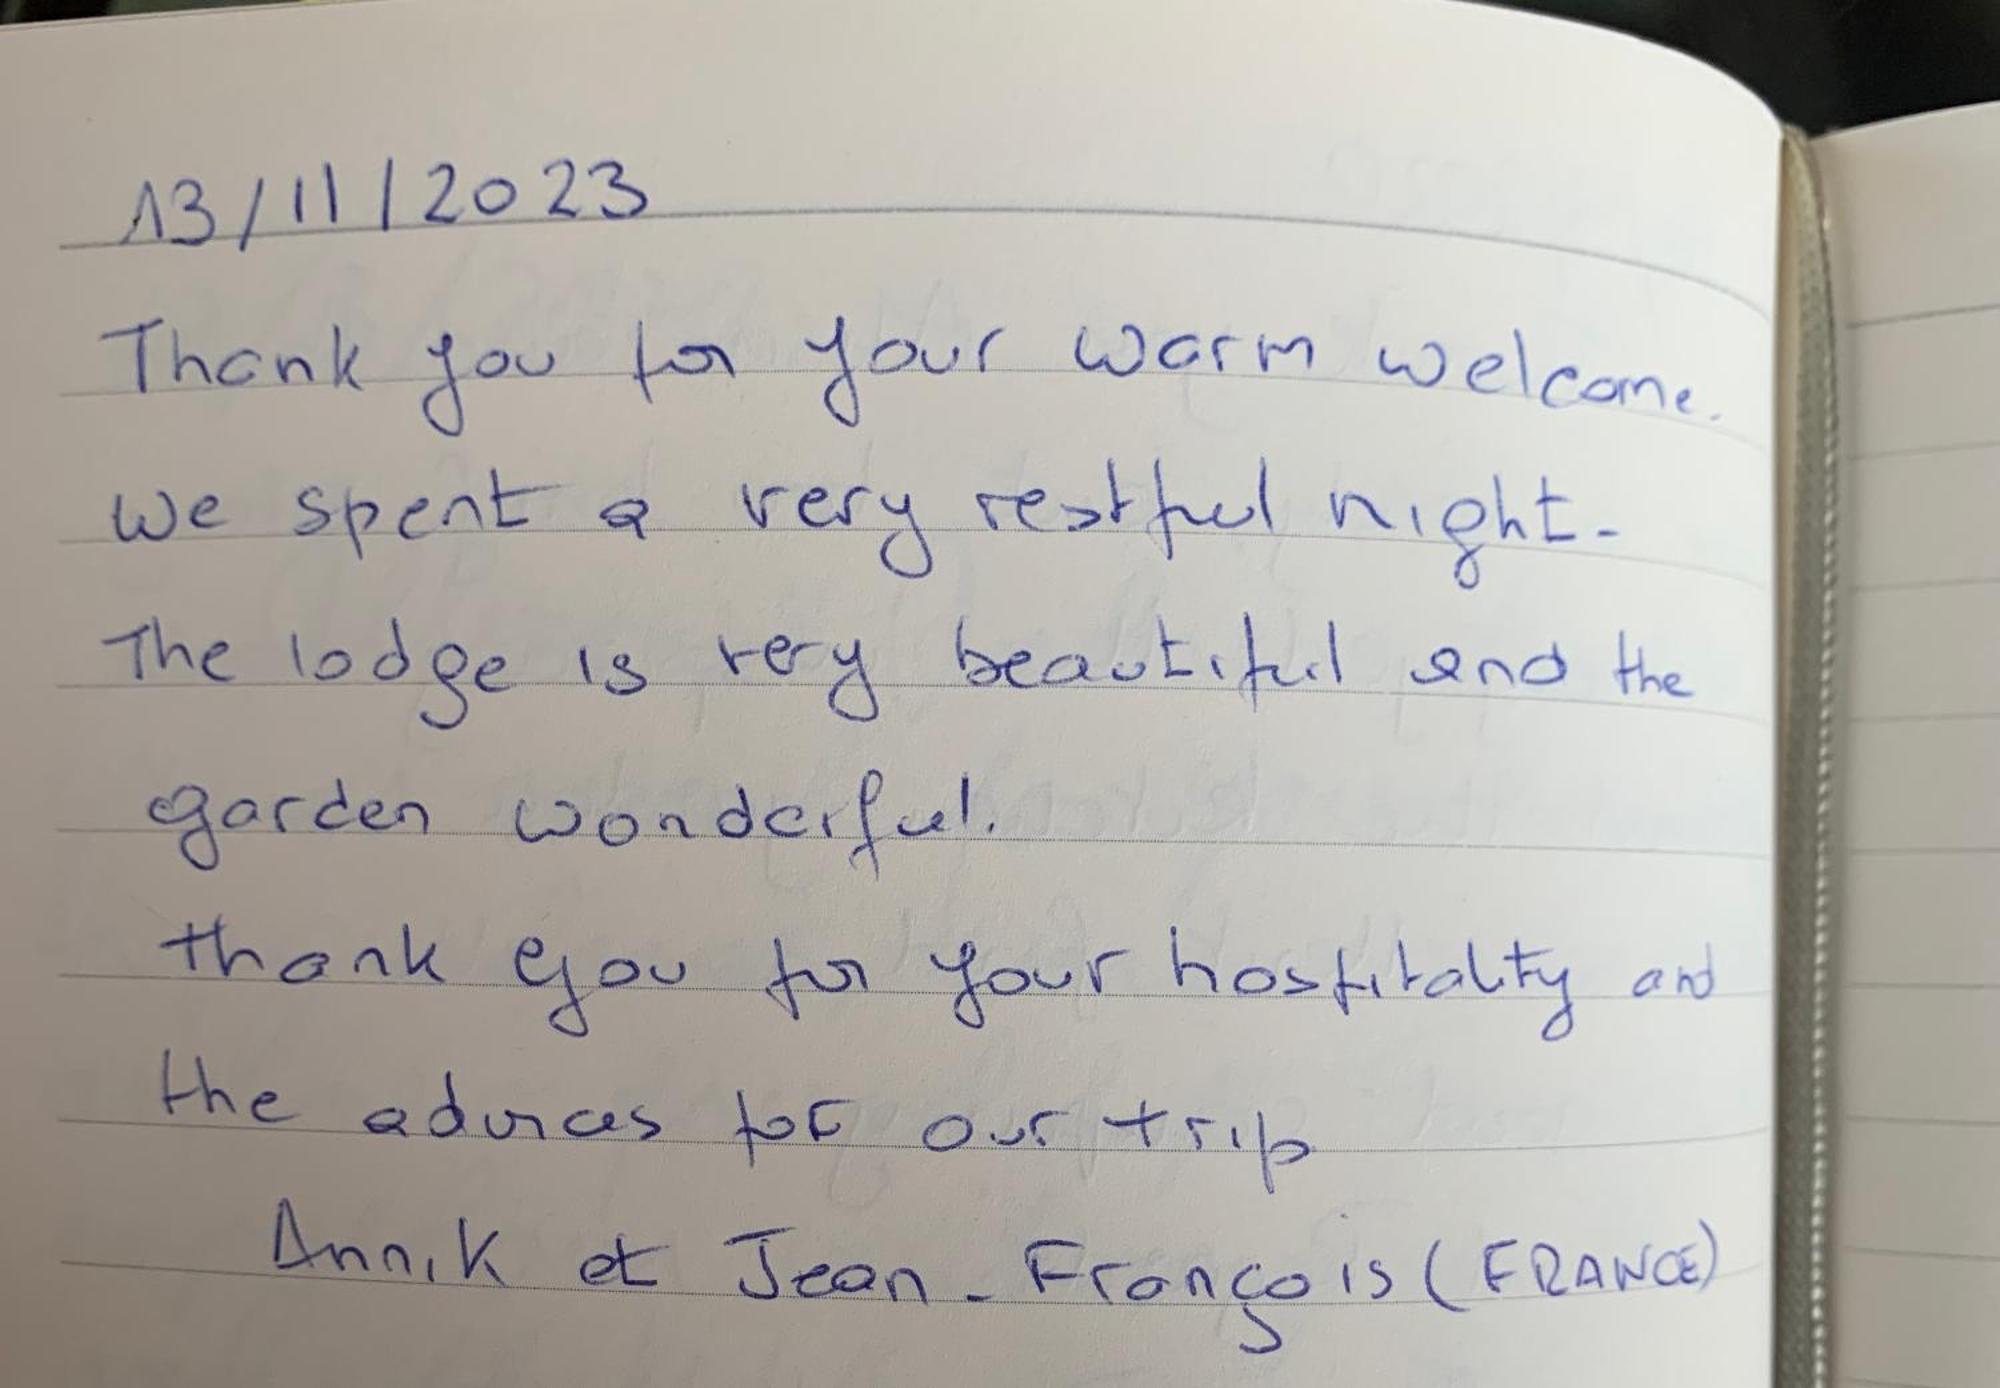 13/11/2023
Thank you for your warm welcome.
We spent a very restful night.
The lodge is very beautiful and the
garden wonderful.
thank you for your hospitality and
the advices for our trip
Annik et Jean-François (FRANCE)